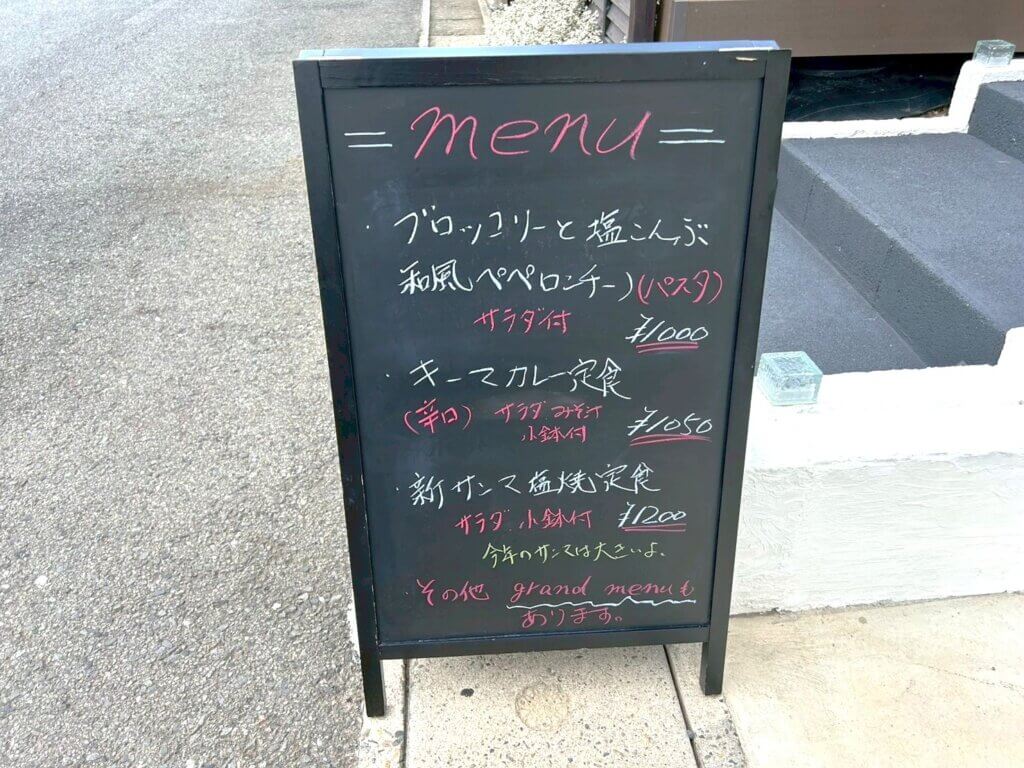 = menu =
・ブロッコリーと塩こんぶ
和風ペペロンチーノ(パスタ)
サラダ付 ¥1000
・キーマカレー定食
(辛口) サラダ みそ汁
小鉢付 ¥1050
・新サンマ塩焼定食
サラダ 小鉢付 ¥1200
今年のサンマは大きいよ。
・その他 grand menuも
あります。